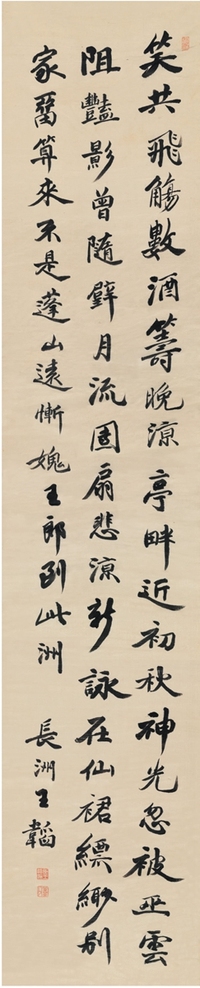 笑共飛觴數酒籌晚涼亭畔近初秋神光忽被巫雲
阻豔影曾隨璧月流團扇悲涼新詠在仙裙縹緲別
家愁算來不是蓬山遠慚媿王郎到此洲
長洲王韜